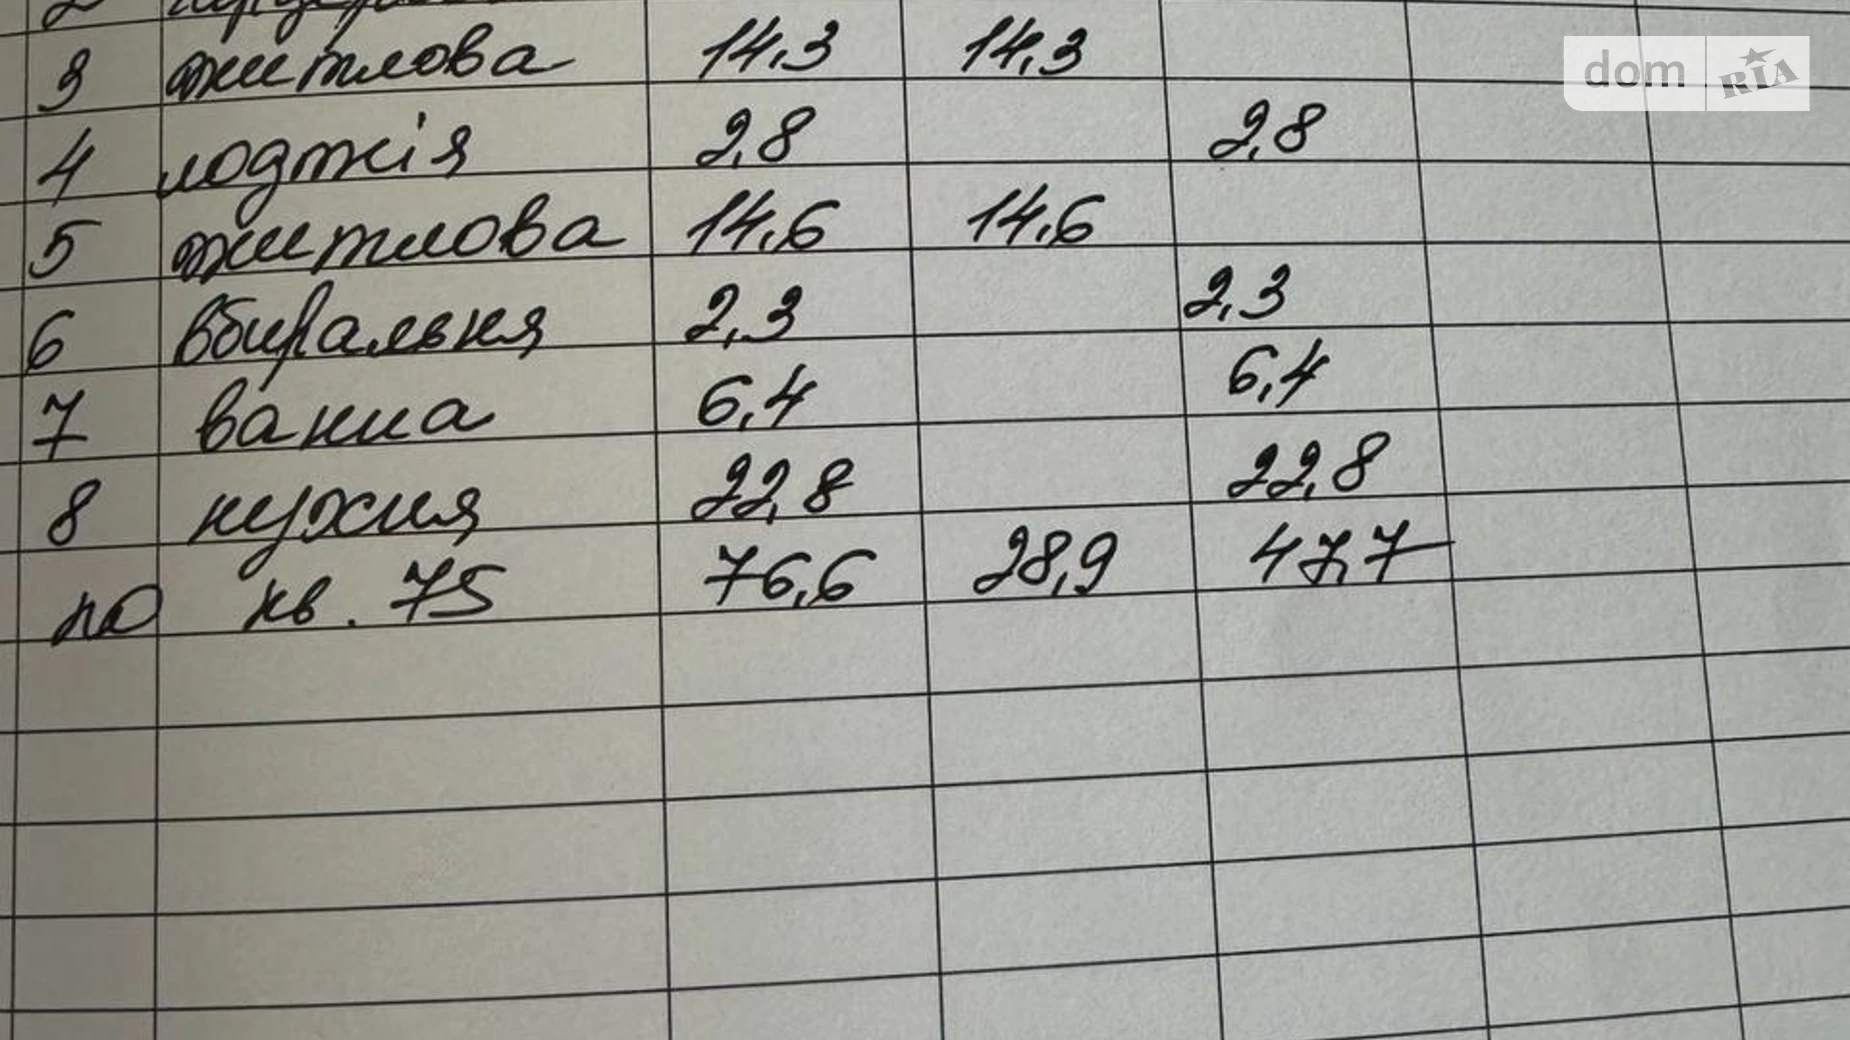 dom RIA
3 житлова 14,3 14,3
4 лоджія 2,8 2,8
5 житлова 14,6 14,6
6 вбиральня 2,3 2,3
7 ванна 6,4 6,4
8 кухня 22,8 22,8
по кв. 75 76,6 28,9 47,7